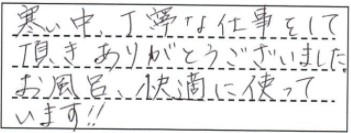 寒い中、丁寧な仕事をして
頂きありがとうございました。
お風呂、快適に使って
います!!